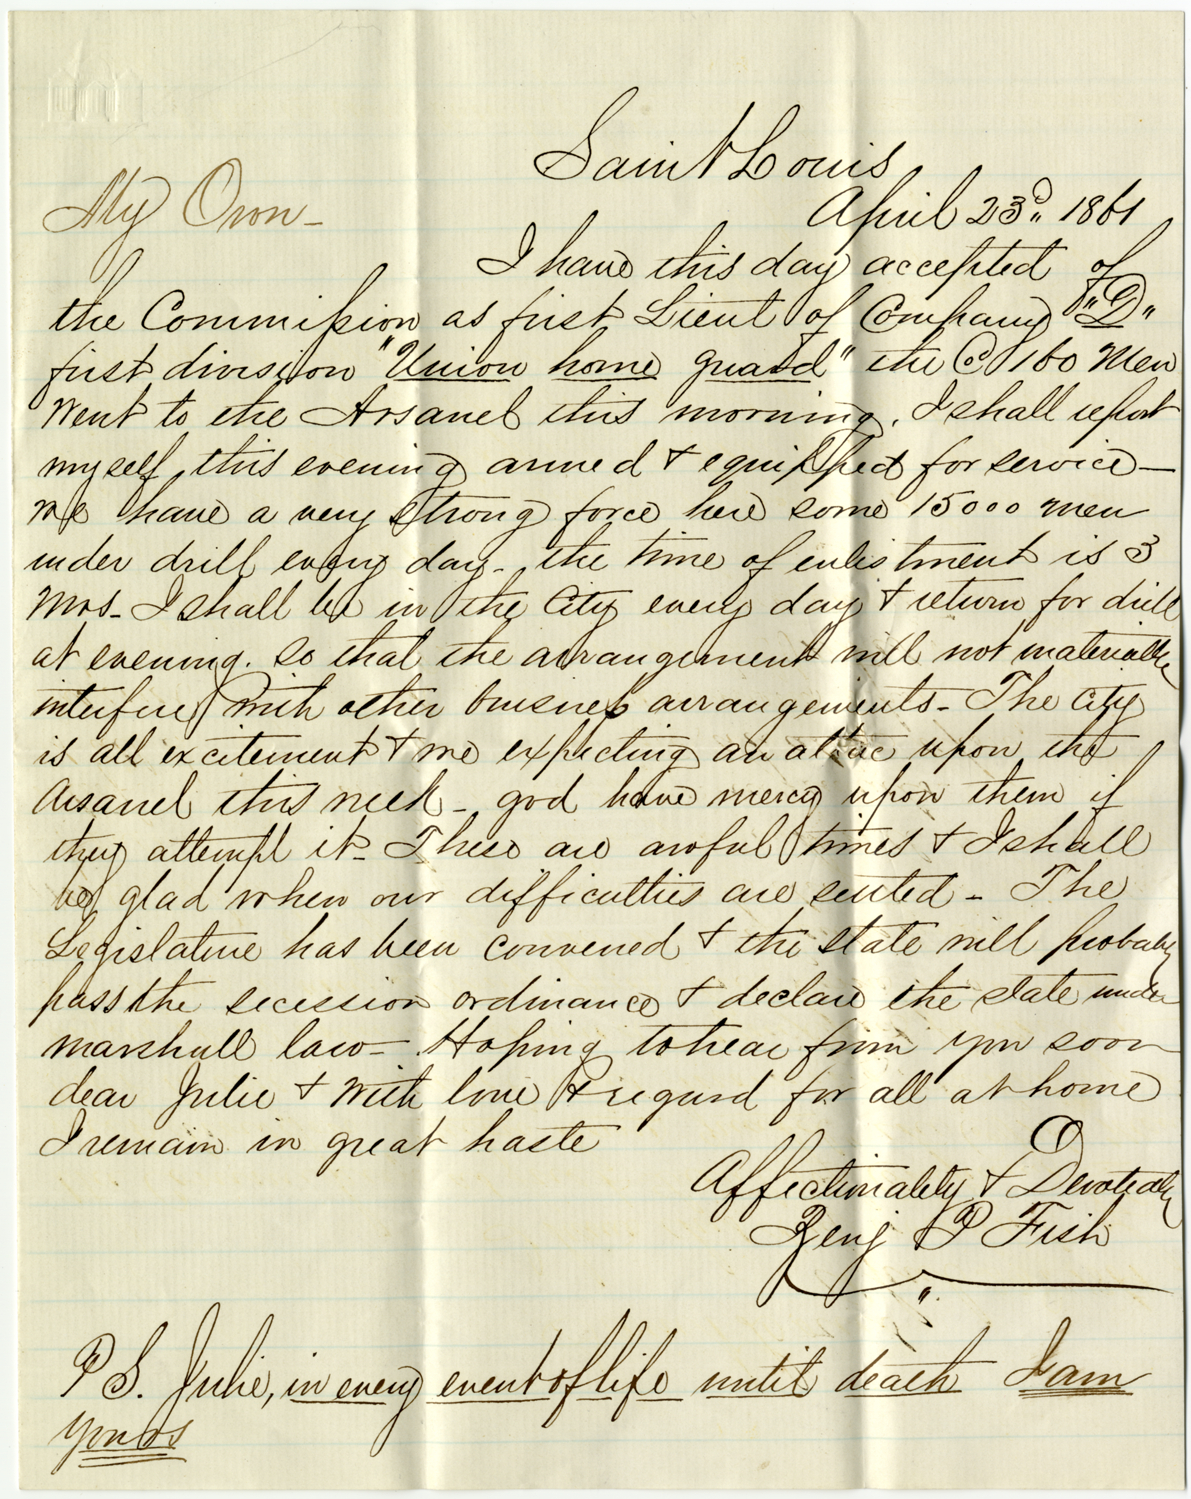 Saint Louis
April 23d 1861
My Own -
I have this day accepted of
the Commission as first Lieut of Company "D"
first division "Union home guard" the Co 160 Men
went to the Arsanel this morning. I shall report
myself this evening armed & equipped for service -
we have a very strong force here some 15000 men
under drill every day - the time of enlistment is 3
Mos - I shall be in the City every day & return for drill
at evening. so that the arrangement will not materially
interfere with other buisness arrangements - The City
is all excitement & we expecting an attac upon the
Arsanel this week - god have mercy upon them if
they attempt it - These are awful times & I shall
be glad when our difficulties are setted - The
Legislature has been convened & the state will probably
pass the secession ordinance & declare the state under
marshall law - Hoping to hear from you soon
dear Julie & with love & regard for all at home
I remain in great haste
Affectionately & Devotedly
Benj P Fish
P S. Julie, in every event of life until death I am
yours